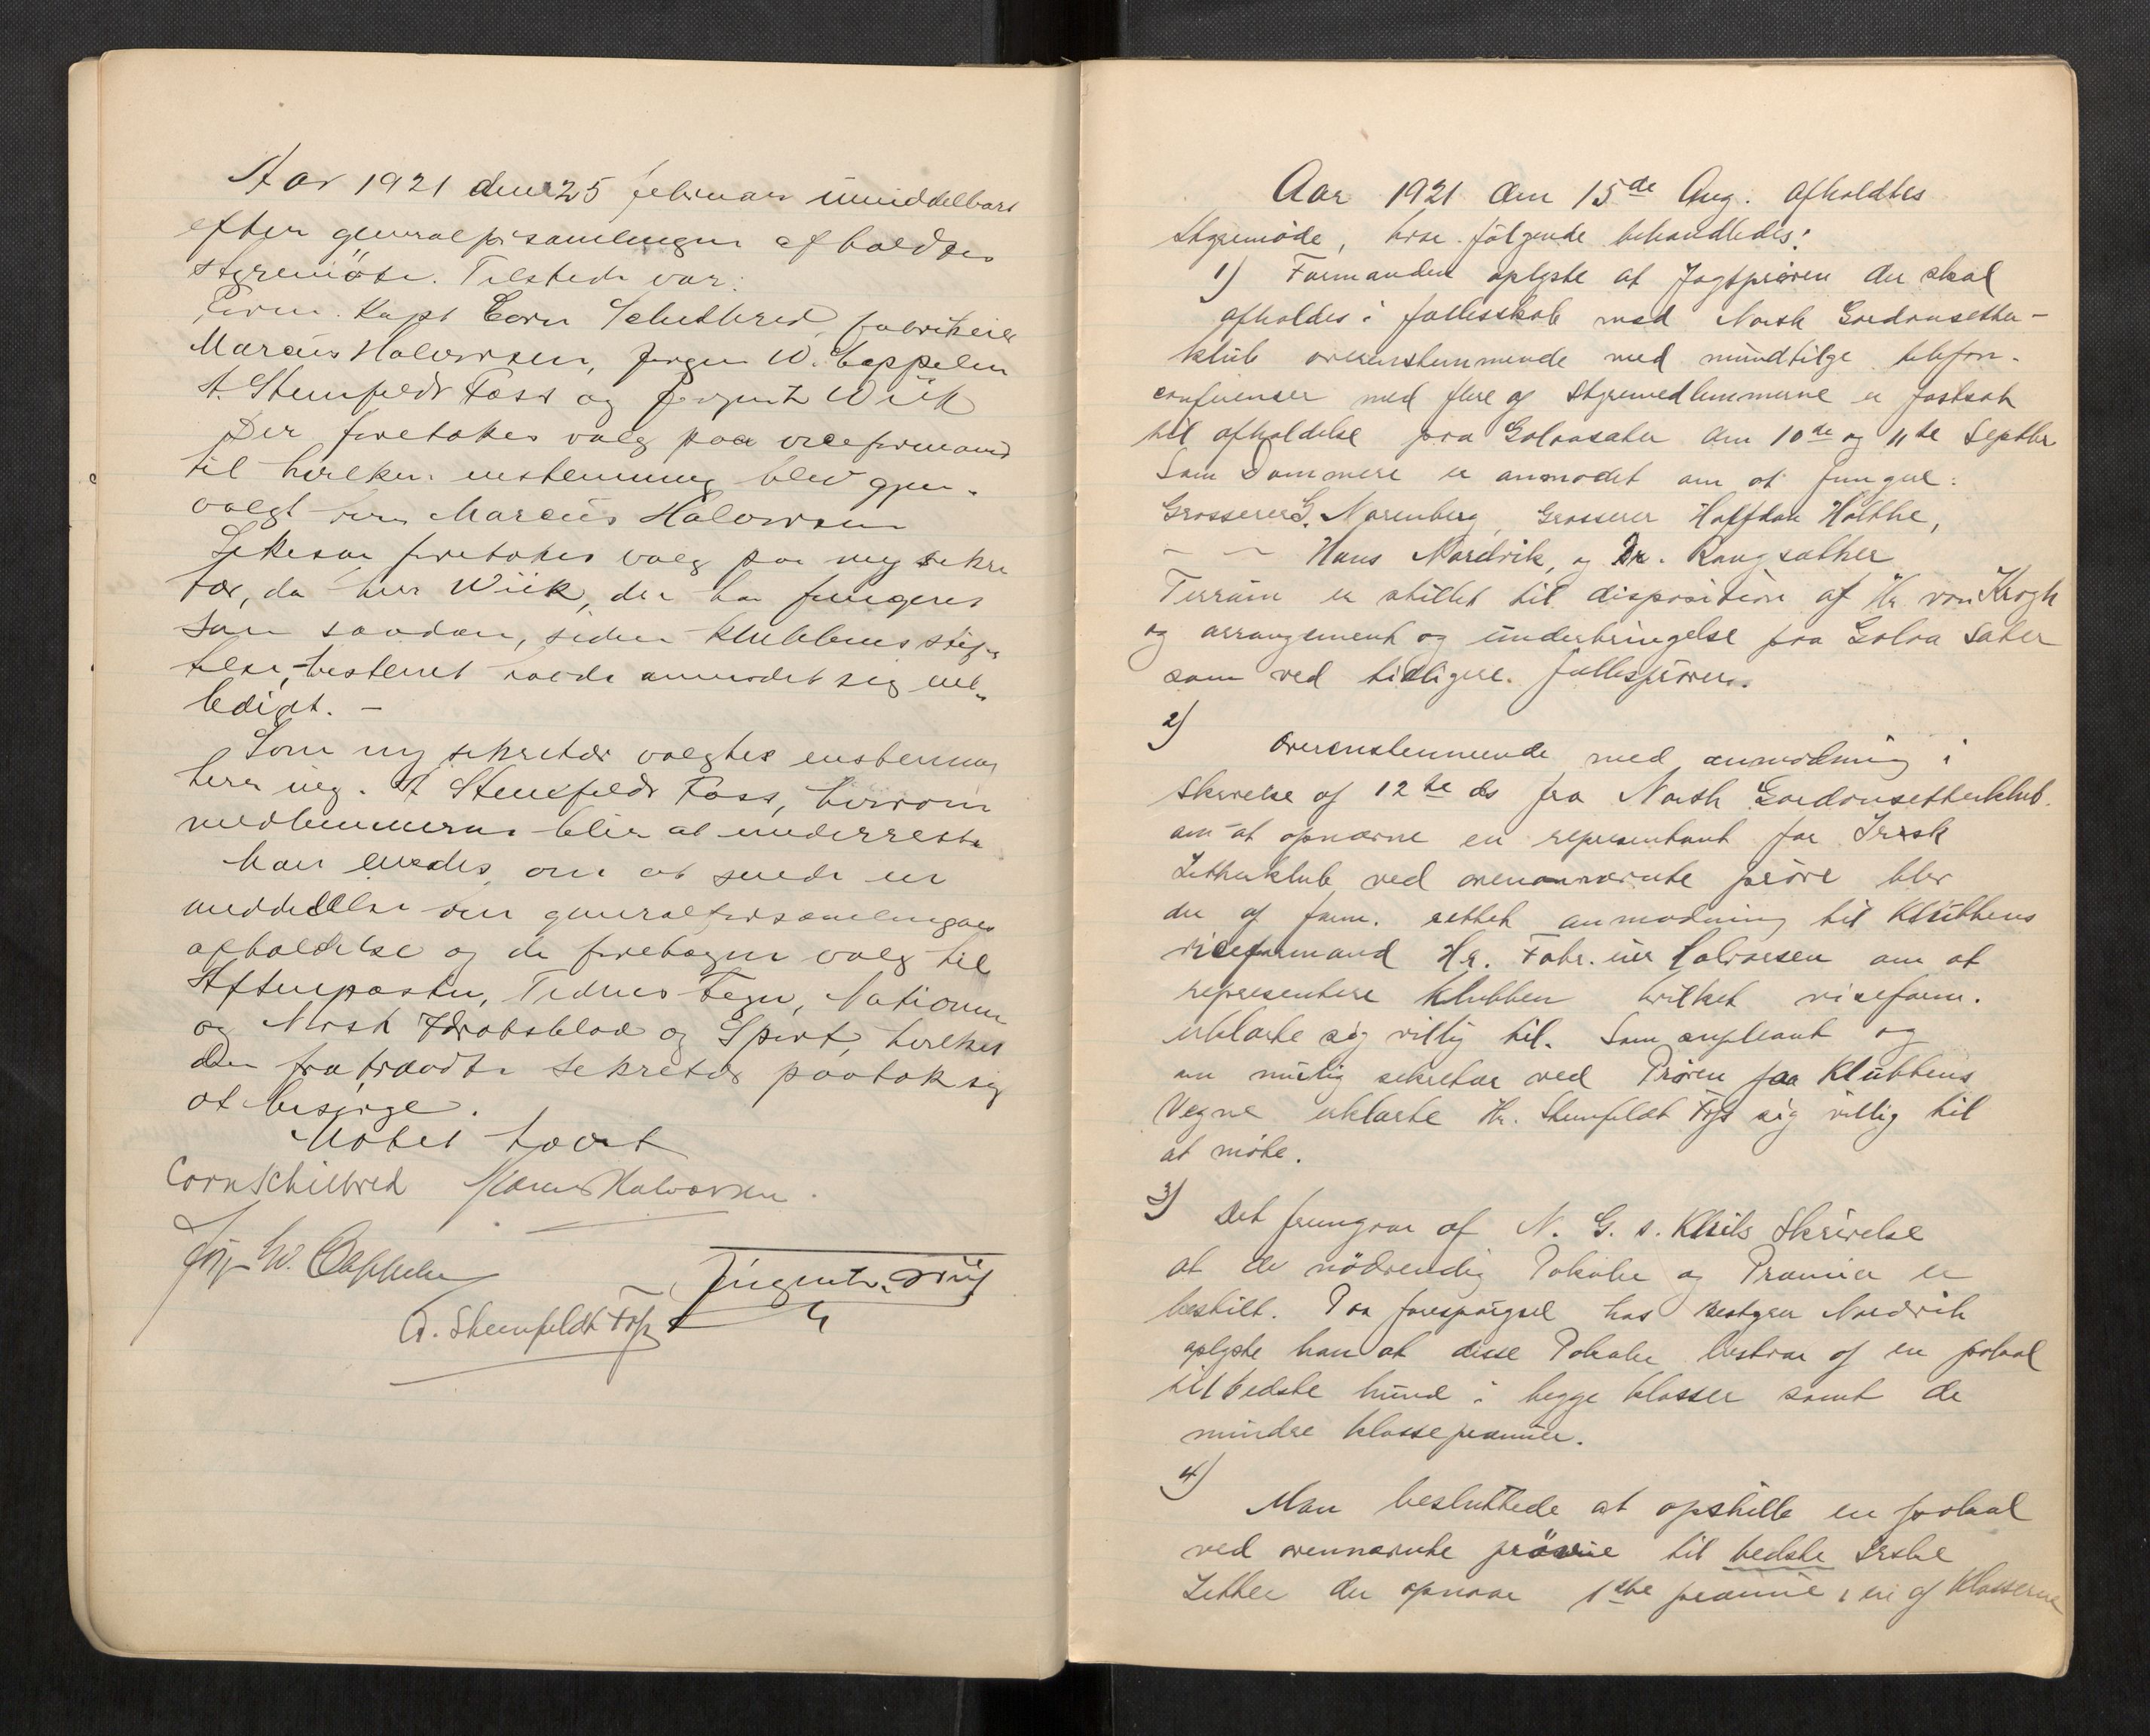 Aar 1921 den 25 februar umiddelbart
efter generalforsamlingen afholdtes
styremöte. Tilstede var:
Form. Kapt Corn Schilbred, fabrikeier
Marcus Halvorsen, Jørgen W. Cappelen
A. Stenfeldt Foss og Wiik
Der foretokes valg paa viceformand
til hvilken enstemmig blev gjen-
valgt herr Marcus Halvorsen
Likesaa foretokes valg paa ny sekre
tær, da herr Wiik, der har fungeret
som saadan, siden klubbens stif-
telse, bestemt havde anmodet sig
ledigt. -
Som ny sekretær valgtes enstemmig
herr ing. A Stenfeldt Foss, hvorom
medlemmerne blir at underrette
Man enedes om at sende en
meddelelse om generalforsamlingens
afholdelse og de foretagne valg til
Aftenposten, Tidens Tegn, Nationen
og Norsk Idrætsblad og Sport, hvilket
den fratraadte sekretær paatok sig
at besørge.
Møtet hævet
Corn Schilbred Marcus Halvorsen.
Jørg W. Cappelen
A. Stenfeldt Foss
Aar 1921 den 15de Aug. afholdtes
Styremöde, hvor fölgende behandledes:
1) Formanden oplyste at Jagtprøven der skal
afholdes i fællesskab med Norsk Gordonsetter-
klub overenstemmende med mundtlige telefon-
conferenser med flere af Styremedlemmerne er fastsat
til afholdelse paa Golaasæter den 10de og 11te Septbr
Som Dommere er anmodet om at fungere:
Grosserer G. Narenberg, Grosserer Halfdan Holthe,
~ ~ Hans Nordvik, og Dr. Raugsæther
Terrain er stillet til disposition af Hr. von Krogh
og arrangement og underbringelse paa Golaa Sæter
som ved tidligere fællesprøver.
2) Overenstemmende med anmodning i
Skrivelse af 12te ds fra Norsk Gordonsetterklub
om at opnævne en representant for Irsk
Setterklub ved ovennævnte prøve blev
der af form. rettet anmodning til Klubbens
viceformand Hr. Fabr. eier Halvorsen om at
representere Klubben hvilket viseform.
erklærte sig villig til. Som supleant og
en mulig sekretær ved Prøven paa Klubbens
Vegne erklærte Hr. Stenfeldt Foss sig villig til
at møte.
3) Det fremgaar af N. G. s. Klubs Skrivelse
at de nødvendig Pokaler og Præmier er
bestilt. Paa forespørgsel hos Bestyrer Nordvik
oplyste han at disse Pokaler bestaar af en pokal
til bedste hund i begge klasser samt de
mindre klassepræmier.
4) Man besluttede at opstille en pokal
ved ovennævnte prøve til bedste Irske
Setter der opnaar 1ste præmie i en af Klasserne